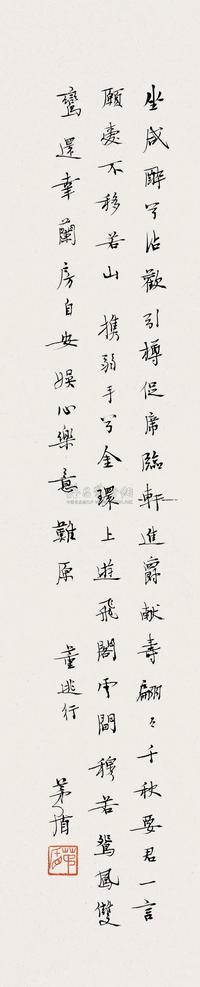 坐咸醉兮沾歡引樽促席臨軒進爵献壽翩々千秋要君一言
願愛不移若山 携弱手兮金環上遊飛閣雲間穆若鴛鳳雙
鸞還幸蘭房自安娱心樂意難原 董逃行
茅盾